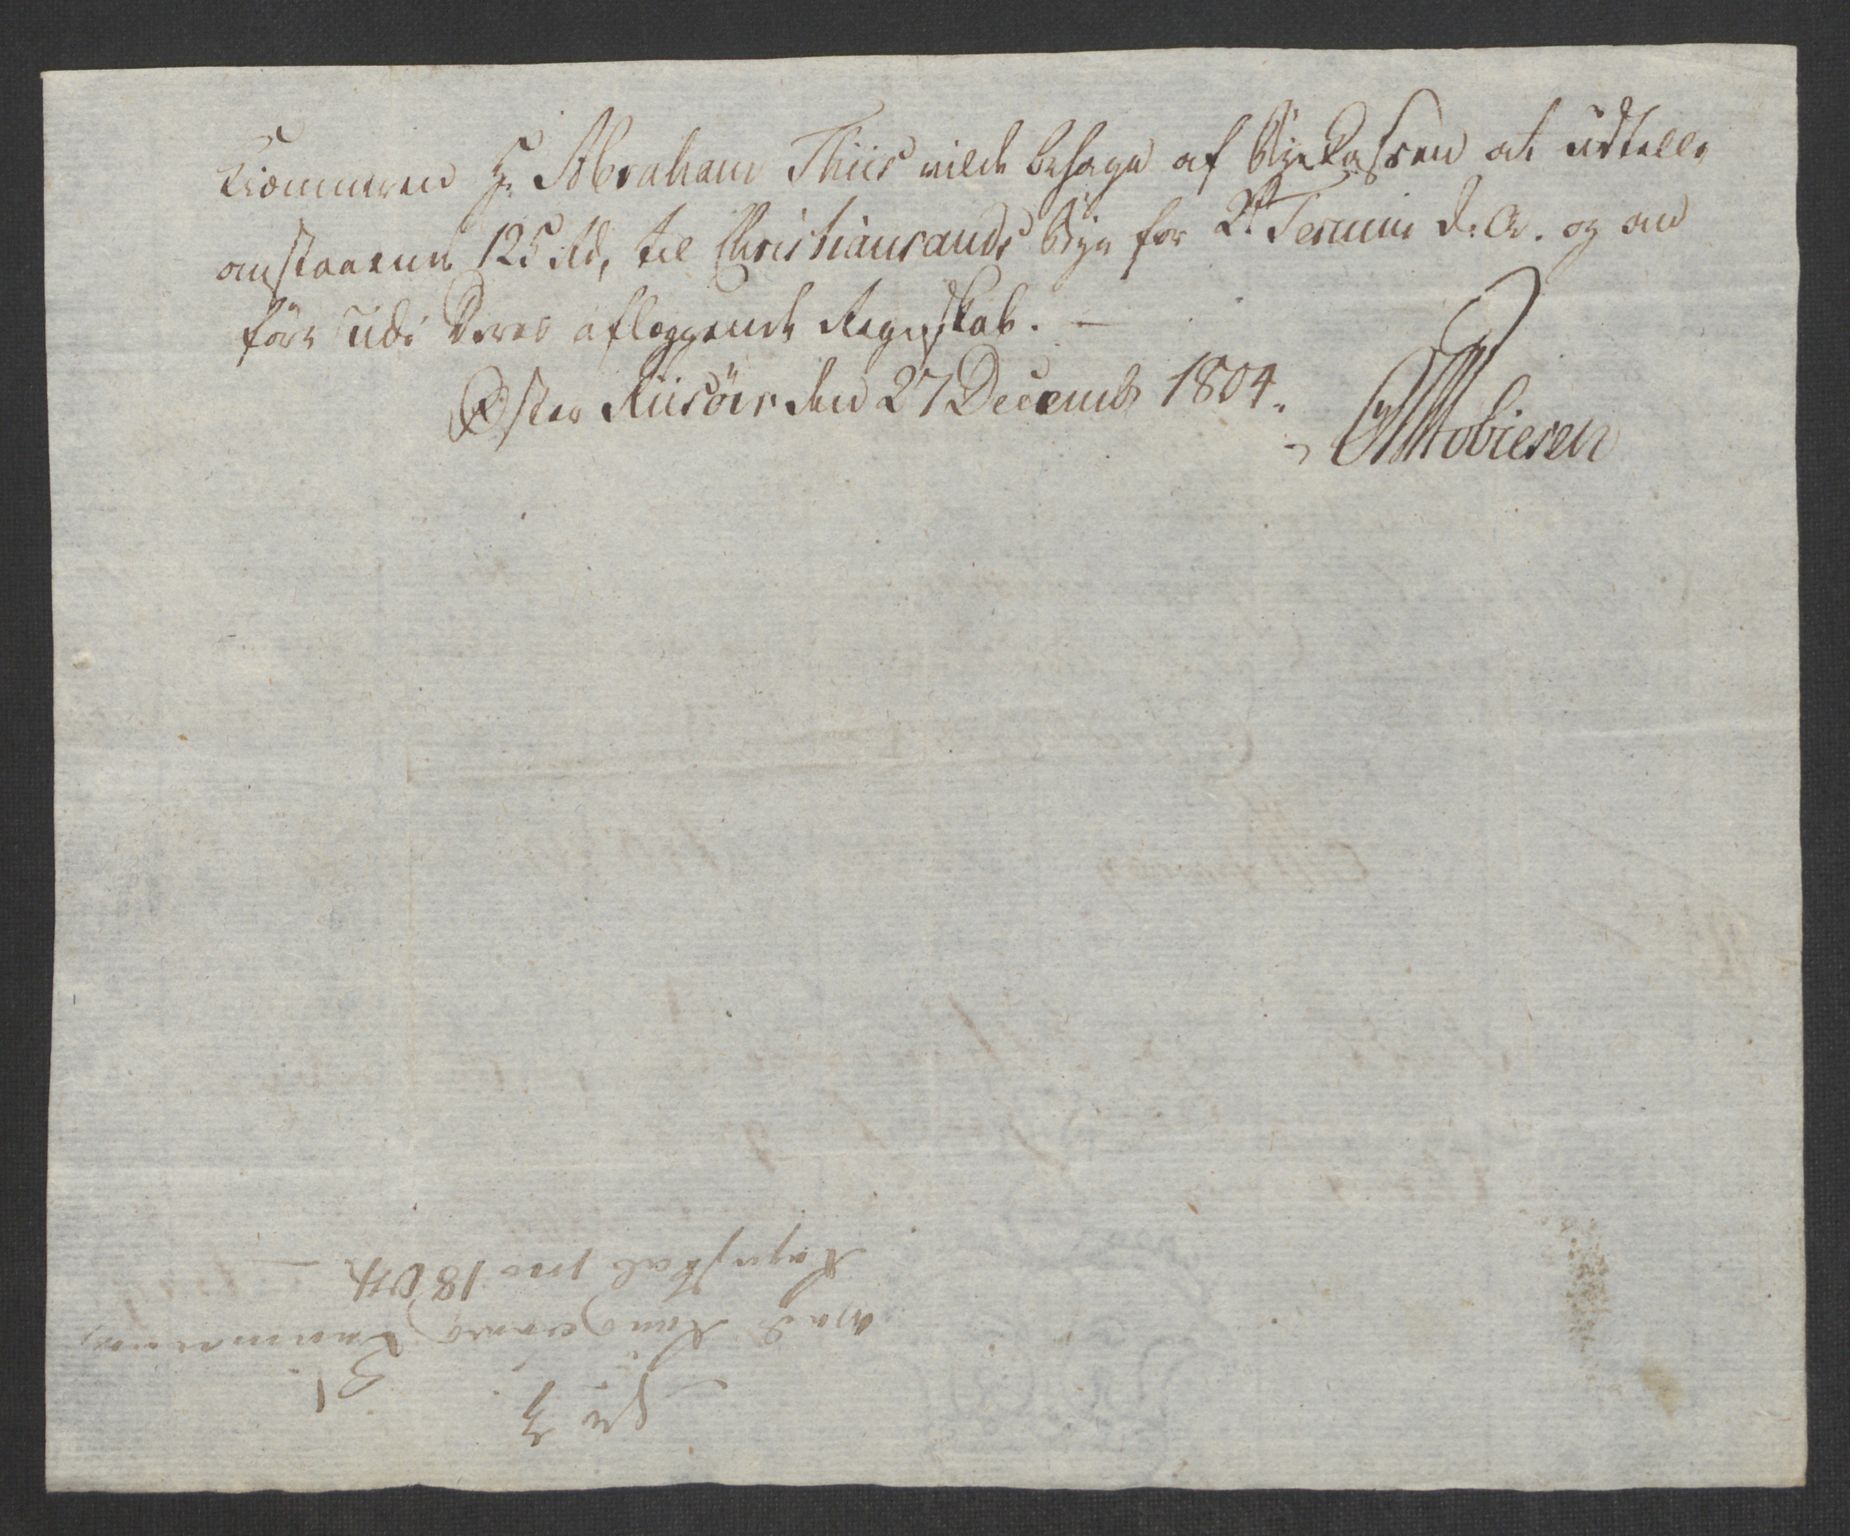 Kiæmneren Hr. Abraham Thiis vilde behage af Byekassen at udtelle
omstaaende 125 Rd, til Christiansands Bye for 2de Termin d: A. og an
före udi Deres aflæggende Regnskab. —
Øster Riisöer den 27 Decembr 1804.
Tobiesen
No 3
Regnskab pro 1804 —